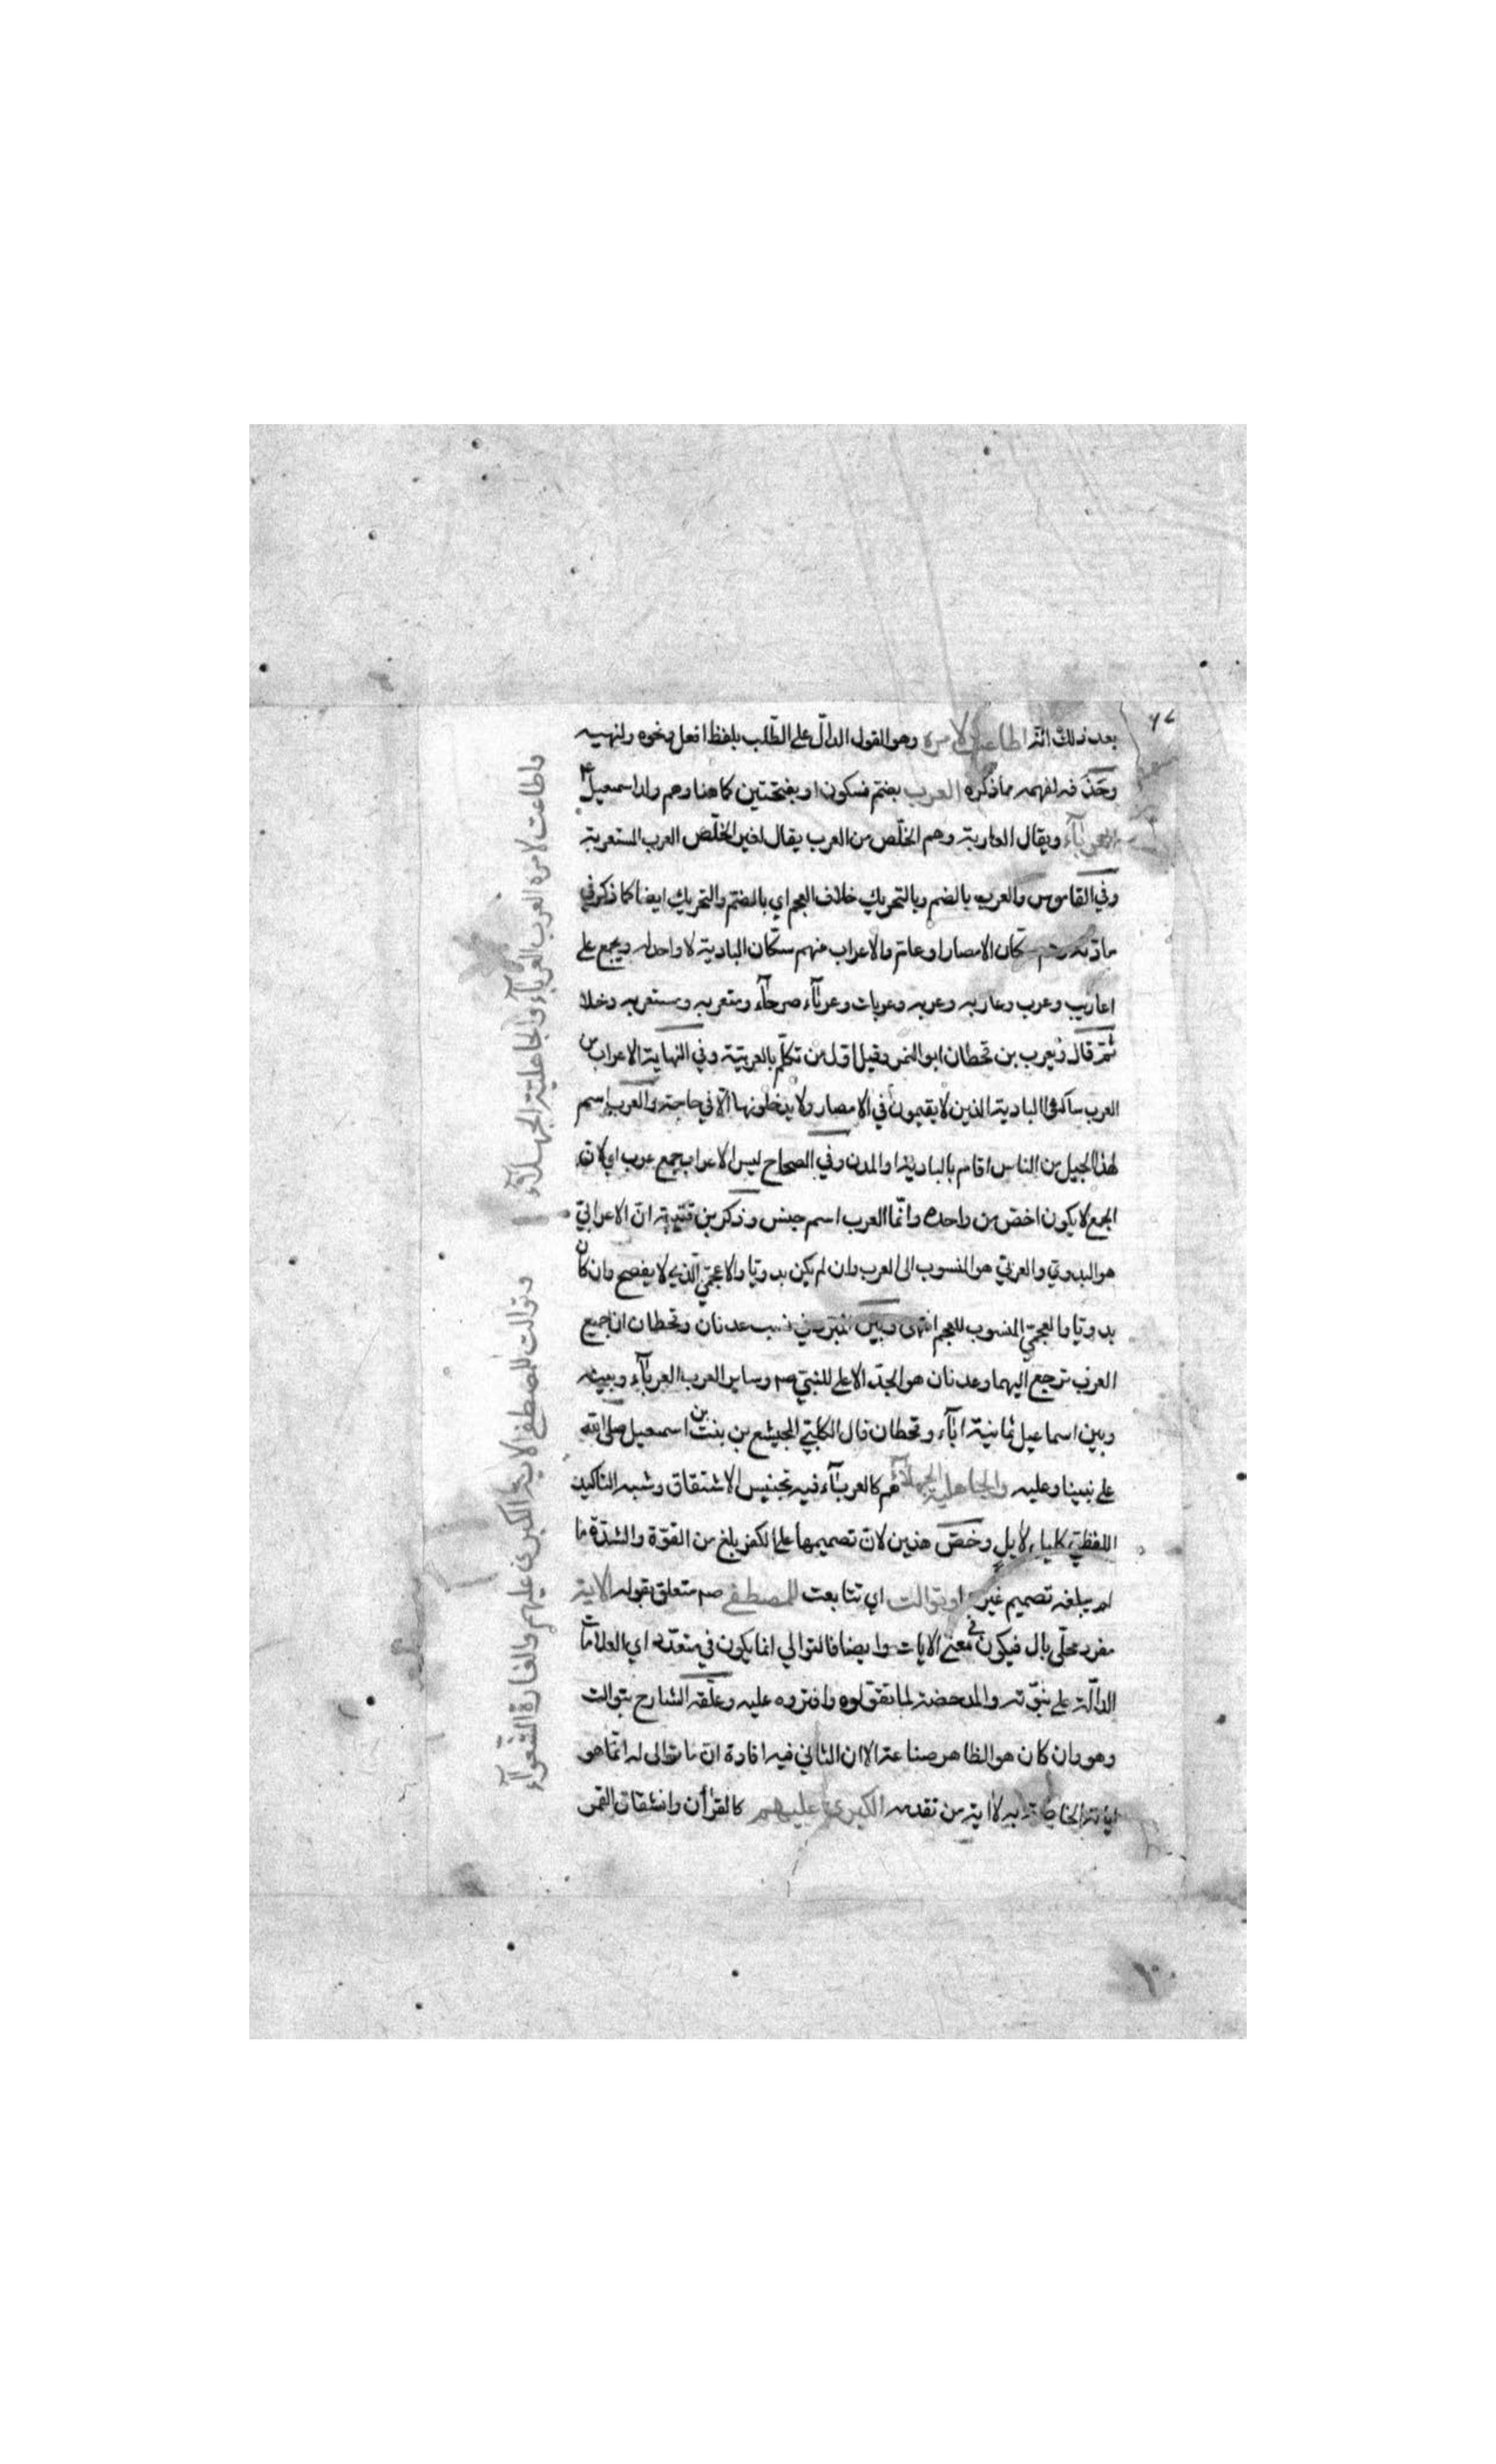 بعد ذلك انّه اطاعت لامره وهو القول الدالّ على الطّلب بلفظ افعل ونحوه ولنهيه
وحذفه لفهمه مما ذكره العرب بضمّ فسكون او بفتحتين كما هنا وهم ولد اسمعيل
العرباء ويقال العاربة وهم الخلّص من العرب يقال لغير الخلّص العرب المستعربة
وفي القاموس والعرب بالضم وبالتحريك خلاف العجم اي بالضمّ والتحريك ايضا كما ذكر في
مادّته سكّان الامصار او عامّ والاعراب منهم سكّان البادية لا واحد له ويجمع على
اعاريب وعرب وعاربه وعربه وعربات وعرباء صرحاء ومتعربه ومستعربه دخلا
ثمّ قال ويعرب بن قحطان ابو اليمن وقيل اوّل من تكلّم بالعربيّة وفي النهاية الاعراب من
العرب ساكنوا البادية الذين لا يقيمون في الامصار ولا يدخلونها الّا في حاجة والعرب اسم
لهذا الجيل من الناس اقام بالبادية او المدن وفي الصحاح ليس الاعراب جمع عرب اي لانّ
الجمع لا يكون اخصّ من واحده وانّما العرب اسم جنس وذكر بن قتيبة انّ الاعرابيّ
هو البدويّ والعربيّ هو المنسوب الى العرب وان لم يكن بدويّا والاعجميّ الّذي لا يفصح وان كان
بدويّا والعجميّ المنسوب للعجم انتهى وبيّن في نسب عدنان وقحطان ان جميع
العرب ترجع اليهما وعدنان هو الجدّ الاعلى للنبيّ صم وساير العرب العرباء وبينه
وبين اسماعيل ثمانية اباء وقحطان قال الكلبيّ الهميسع بن بنت بن اسمعيل صلى الله
على نبينا وعليه والجاهلية الجهلاء هم كالعرباء فيه تجنيس الاشتقاق وشبه التاكيد
اللفظيّ كلياء لايل وخصّ هذين لانّ تصميمها على الكفر بلغ من القوّة والشدّة ما
لم يبلغه تصميم غير او توالت اي تتابعت للمصطفى صم متعلق بقوله الاية
مفرد محلّى بال فيكون في معنى الايات وايضا فالتوالي انما يكون في متعدّد اي العلامات
الدالّة على نبوّته والمدحضة لما تقوّلوه وافتروه عليه وعلّقه الشارح بتوالت
وهو وان كان هو الظاهر صناعة الا ان الثاني فيه افادة انّ ما توالى له انّما هو
اياته الخاصّة به لا اية من تقدمه الكبرى عليهم كالقران وانشقاق القمر
واطاعت لامره العرب العرباء والجاهلية الجهلاء
وتوالت للمصطفى الاية الكبرى عليهم والغارة الشعواء